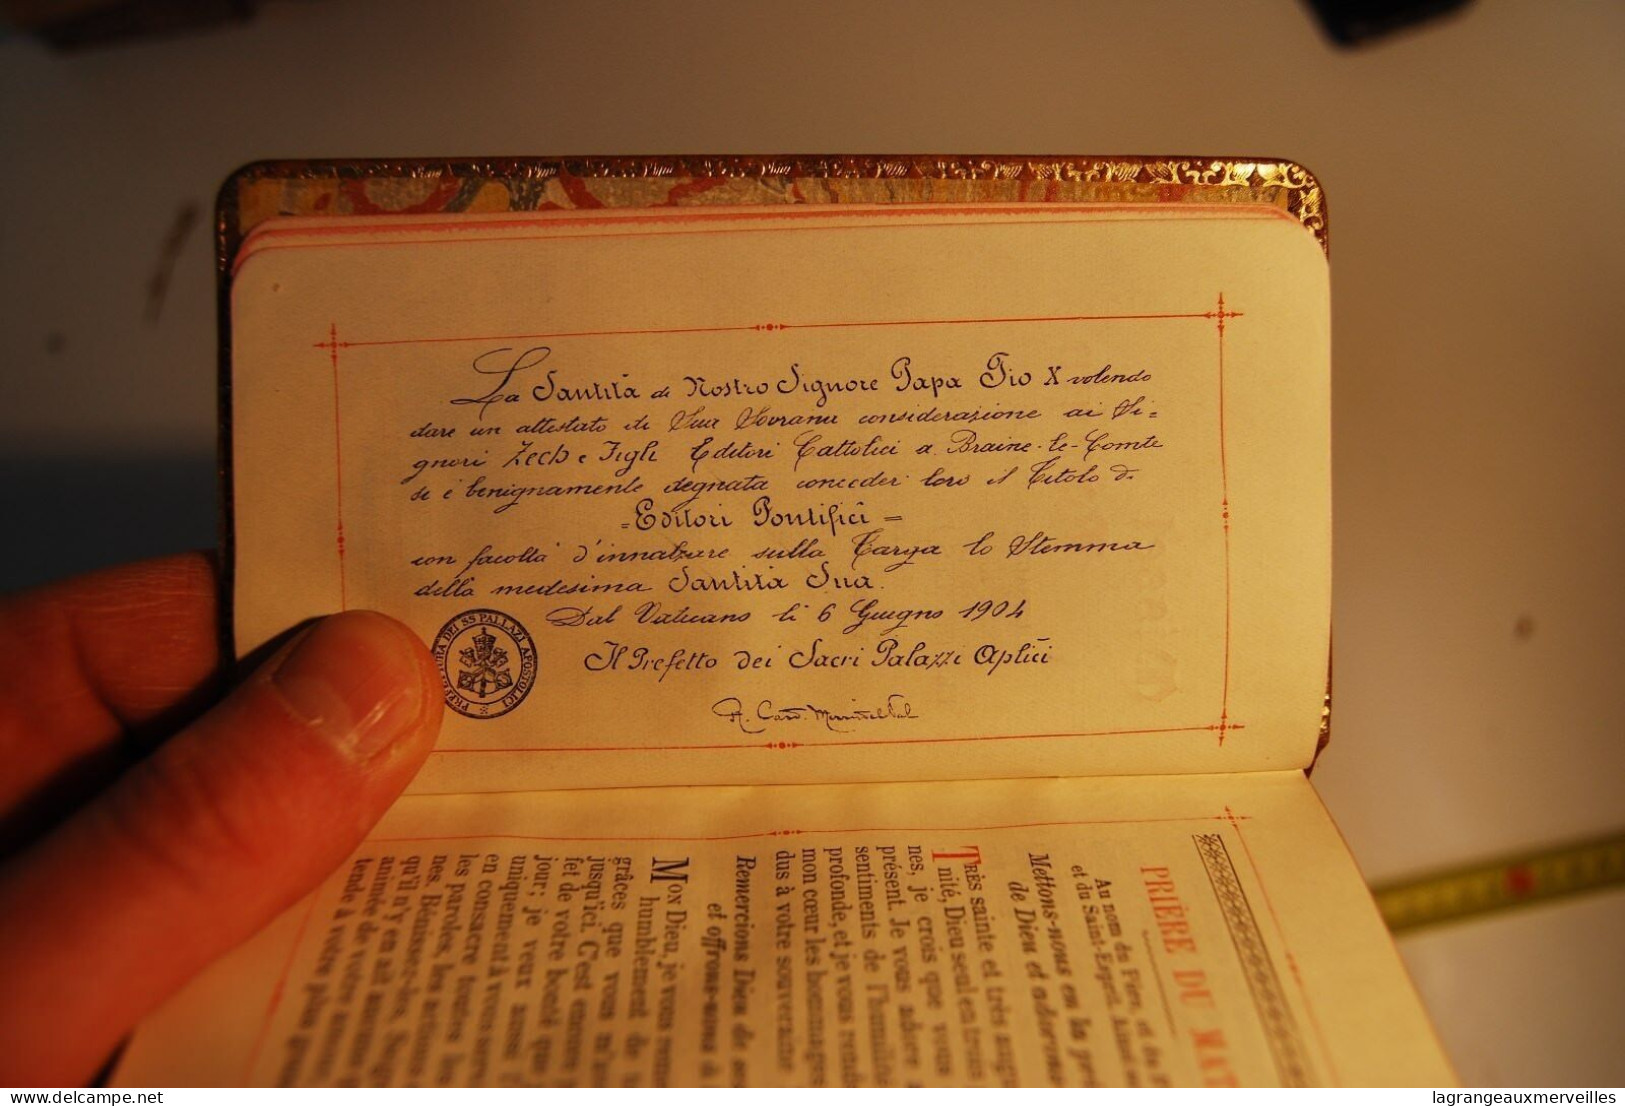 La Santità di Nostro Signore Papa Pio X volendo
dare un attestato di Sua Sovrana considerazione ai Si=
gnori Zech e Figli Editori Cattolici a Braine-le-Comte
si è benignamente degnata conceder loro il titolo di
=Editori Pontifici=
con facoltà d'innalzare sulla Targa lo Stemma
della medesima Santità Sua.
Dal Vaticano li 6 Giugno 1904
Il Prefetto dei Sacri Palazzi Aplici
R. Card. Merry del Val
PREFETTURA DEI SS PALLAZI APOSTOLICI
PRIÈRE DU MAT
Au nom du Père, et du
et du Saint-Esprit. Ainsi
Mettons-nous en la pré
de Dieu et adoron
TRÈS sainte et très aug
nité, Dieu seul en trois
nes, je crois que vous
présent. Je vous adore
sentiments de l'humilité
profonde, et je vous rends
mon cœur les hommages
dus à votre souveraine
Remercions Dieu de
et offrons-nous à
MON Dieu, je vous remer
humblement de
grâces que vous m'a
jusqu'ici. C'est encore
fet de votre bonté que
jour; je veux aussi
uniquement à vous
en consacre toutes
les paroles, les actions
nes. Bénissez-les,
qu'il n'y en ait aucune
animée de votre amour
tende à votre plus gran
delcampe.net
lagrangeauxmerveilles